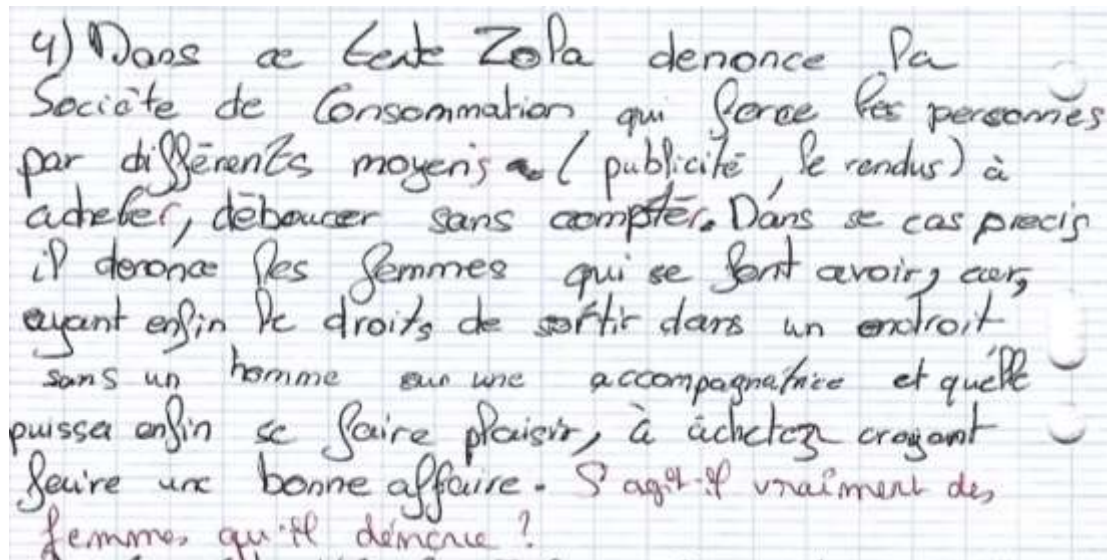 4) Dans ce texte Zola denonce la
Sociéte de Consommation qui force les personnes
par différents moyens (publicité, le rendus) à
acheter, débourcer sans compter. Dans se cas precis
il denonce les femmes qui se font avoir, car,
ayant enfin le droits de sortir dans un endroit
sans un homme une accompagnatrice et quelle
puisse enfin se faire plaisir, à achetez croyant
faire une bonne affaire. S'agit-il vraiment des
femmes qu'il dénonce ?